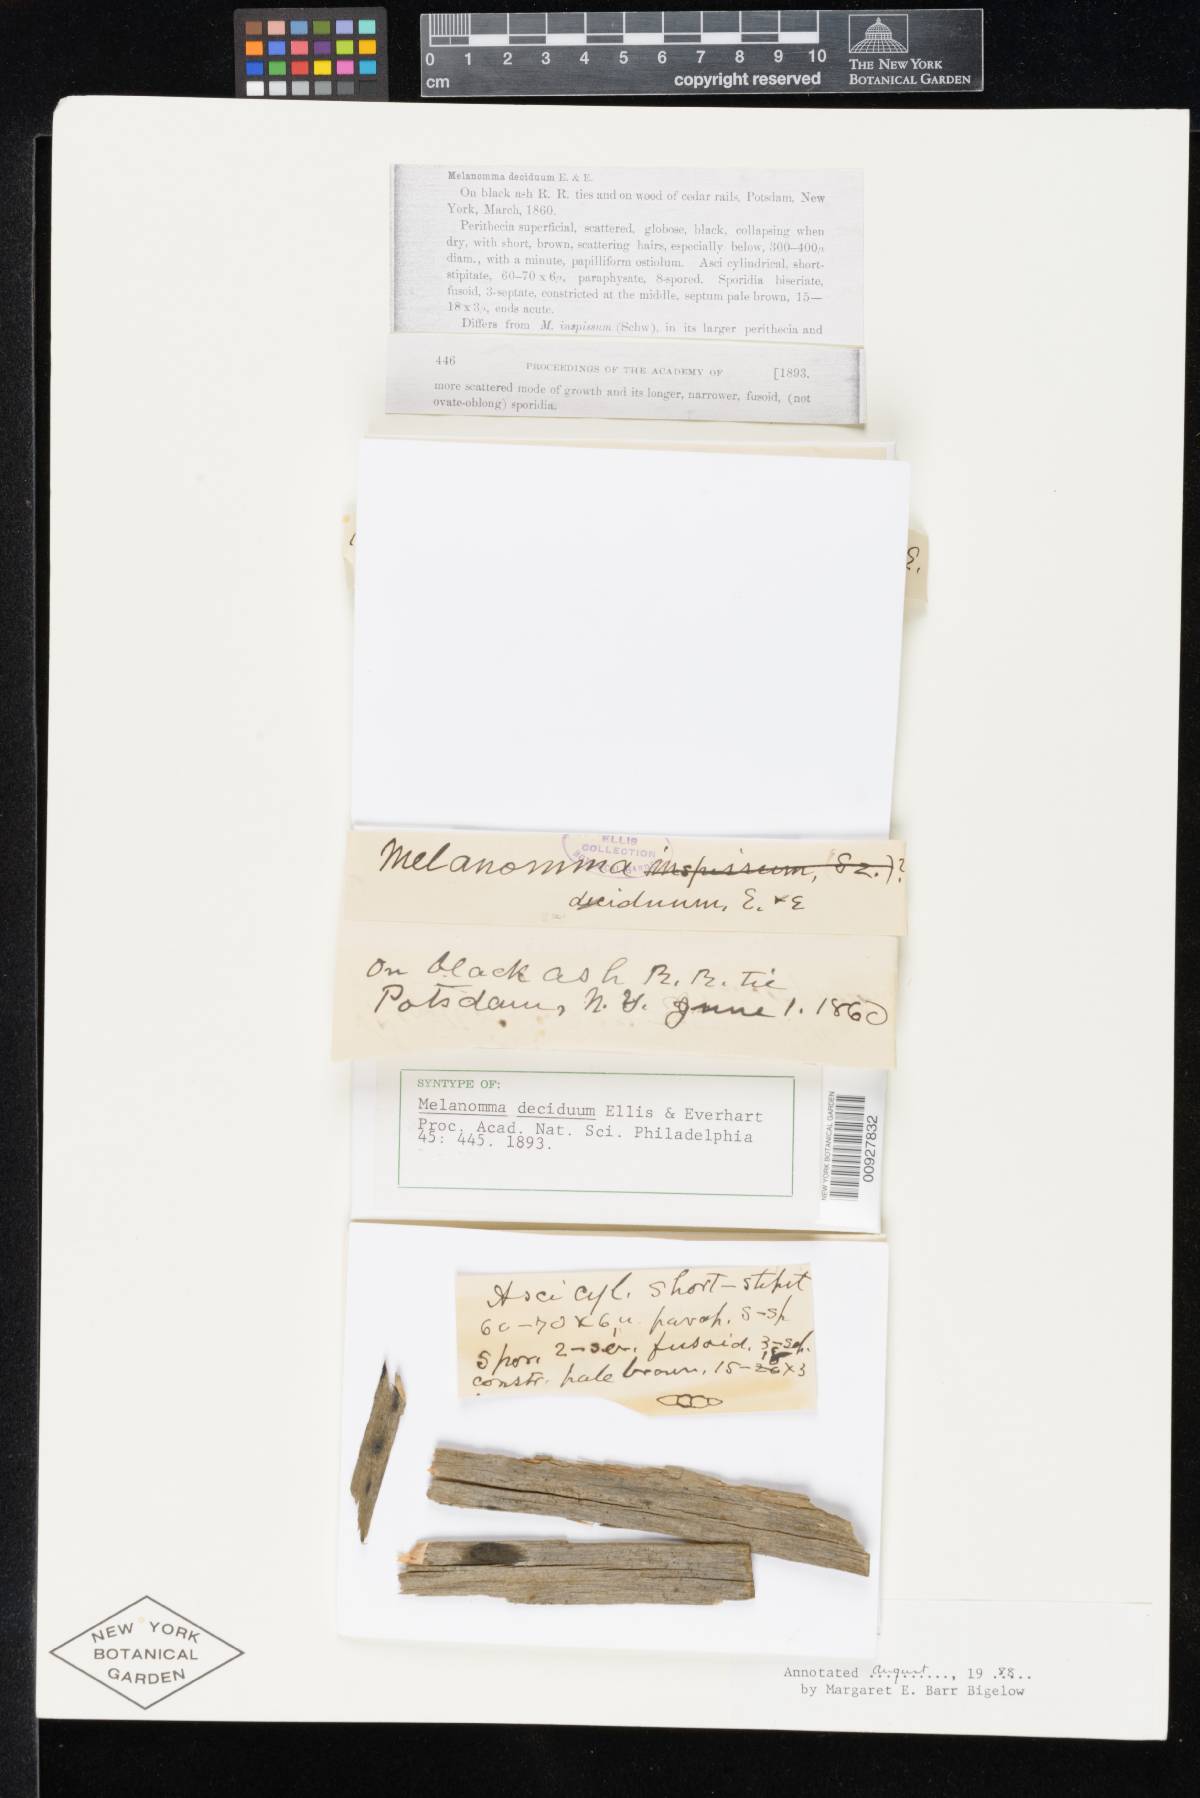 0 1 2 3 4 5 6 7 8 9 10
cm
copyright reserved
THE NEW YORK
BOTANICAL GARDEN
Melanomma deciduum E. & E.
On black ash R. R. ties and on wood of cedar rails, Potsdam, New
York, March, 1860.
Perithecia superficial, scattered, globose, black, collapsing when
dry, with short, brown, scattering hairs, especially below, 300–400µ
diam., with a minute, papilliform ostiolum. Asci cylindrical, short-
stipitate, 60–70 x 6µ, paraphysate, 8-spored. Sporidia biseriate,
fusoid, 3-septate, constricted at the middle, septum pale brown, 15—
18 x 3µ, ends acute.
Differs from M. inspissum (Schw). in its larger perithecia and
446 PROCEEDINGS OF THE ACADEMY OF [1893.
more scattered mode of growth and its longer, narrower, fusoid, (not
ovate-oblong) sporidia.
E.
ELLIS
COLLECTION
Melanomma inspissum, (Sz.)?
deciduum, E. & E
On black ash R. R. tie
Potsdam, N. Y. June 1. 1860
SYNTYPE OF:
Melanomma deciduum Ellis & Everhart
Proc. Acad. Nat. Sci. Philadelphia
45: 445. 1893.
NEW YORK BOTANICAL GARDEN
00927832
Asci cyl. short-stipit
60-70 x 6µ. parap. 8-sp
Spor. 2-ser. fusoid. 3-sep.
18
constr. pale brown. 15-20 x 3
NEW YORK
BOTANICAL
GARDEN
Annotated August, 19 88
by Margaret E. Barr Bigelow